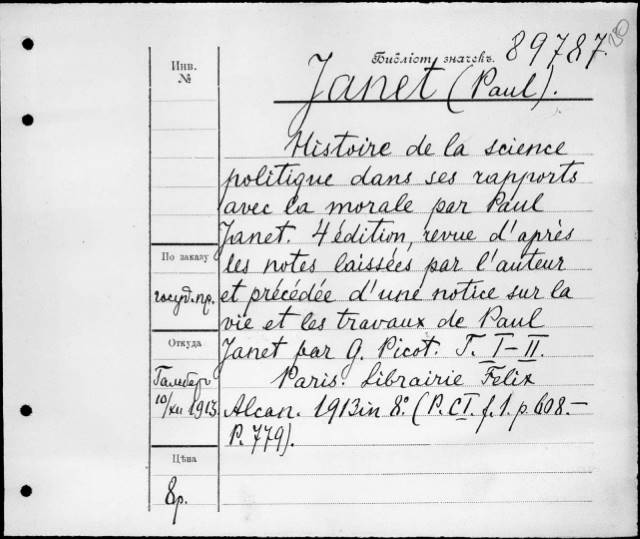 Библіот. значекъ. 89787
Инв.
№
Janet (Paul).
Histoire de la science
politique dans ses rapports
avec la morale par Paul
Janet. 4 édition, revue d'après
les notes laissées par l'auteur
et précédée d'une notice sur la
vie et les travaux de Paul
Janet par G. Picot. T. I–II.
Paris. Librairie Felix
Alcan. 1913 in 8º. (P. CI. f. 1. p 608.–
P. 779).
По заказу
госуд. пр.
Откуда
10/XII 1913
Цѣна
8 р.